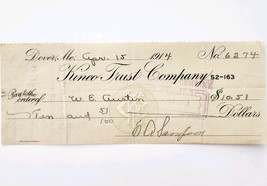 Dover, Me. Apr. 15 1914 No. 6274
Kineo Trust Company 52-163
Pay to the order of W. E. Austin $10.51
Ten and 51/100 Dollars